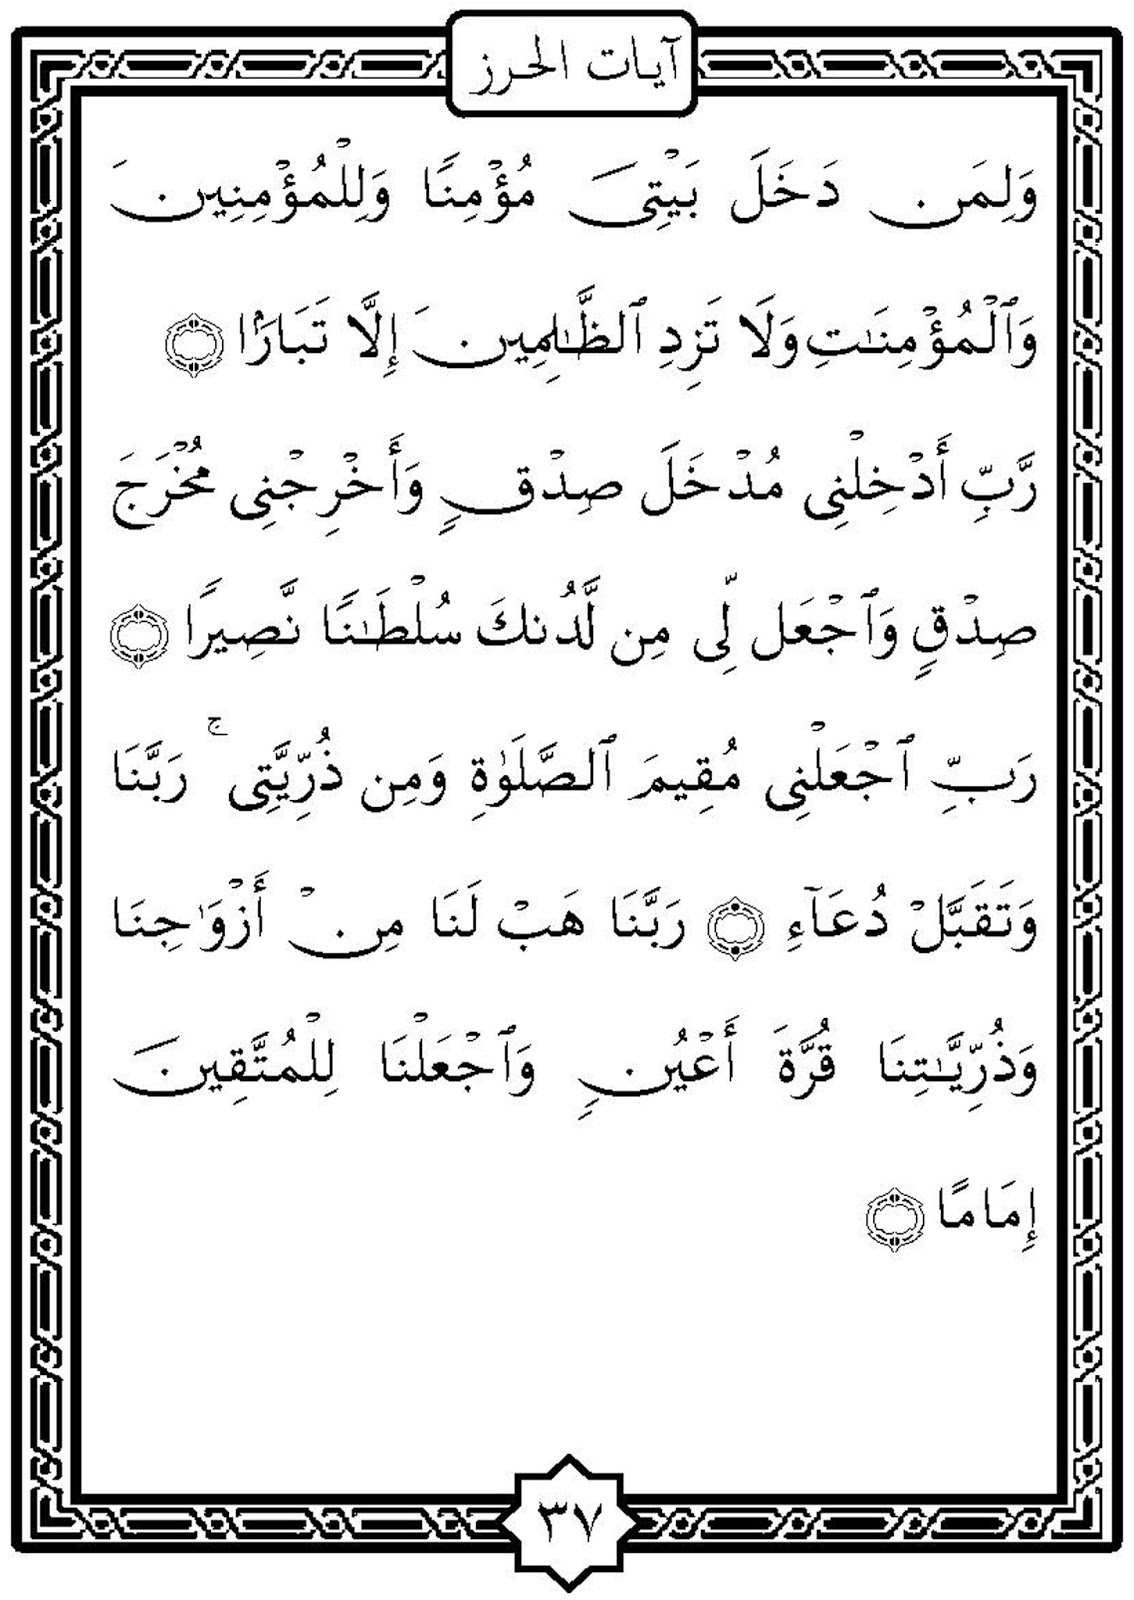 آيات الحرز
وَلِمَن دَخَلَ بَيْتِىَ مُؤْمِنًا وَلِلْمُؤْمِنِينَ
وَٱلْمُؤْمِنَـٰتِ وَلَا تَزِدِ ٱلظَّـٰلِمِينَ إِلَّا تَبَارًۢا ۝
رَّبِّ أَدْخِلْنِى مُدْخَلَ صِدْقٍ وَأَخْرِجْنِى مُخْرَجَ
صِدْقٍ وَٱجْعَل لِّى مِن لَّدُنكَ سُلْطَـٰنًا نَّصِيرًا ۝
رَبِّ ٱجْعَلْنِى مُقِيمَ ٱلصَّلَوٰةِ وَمِن ذُرِّيَّتِى ۚ رَبَّنَا
وَتَقَبَّلْ دُعَآءِ ۝ رَبَّنَا هَبْ لَنَا مِنْ أَزْوَٰجِنَا
وَذُرِّيَّـٰتِنَا قُرَّةَ أَعْيُنٍ وَٱجْعَلْنَا لِلْمُتَّقِينَ
إِمَامًا ۝
٣٧